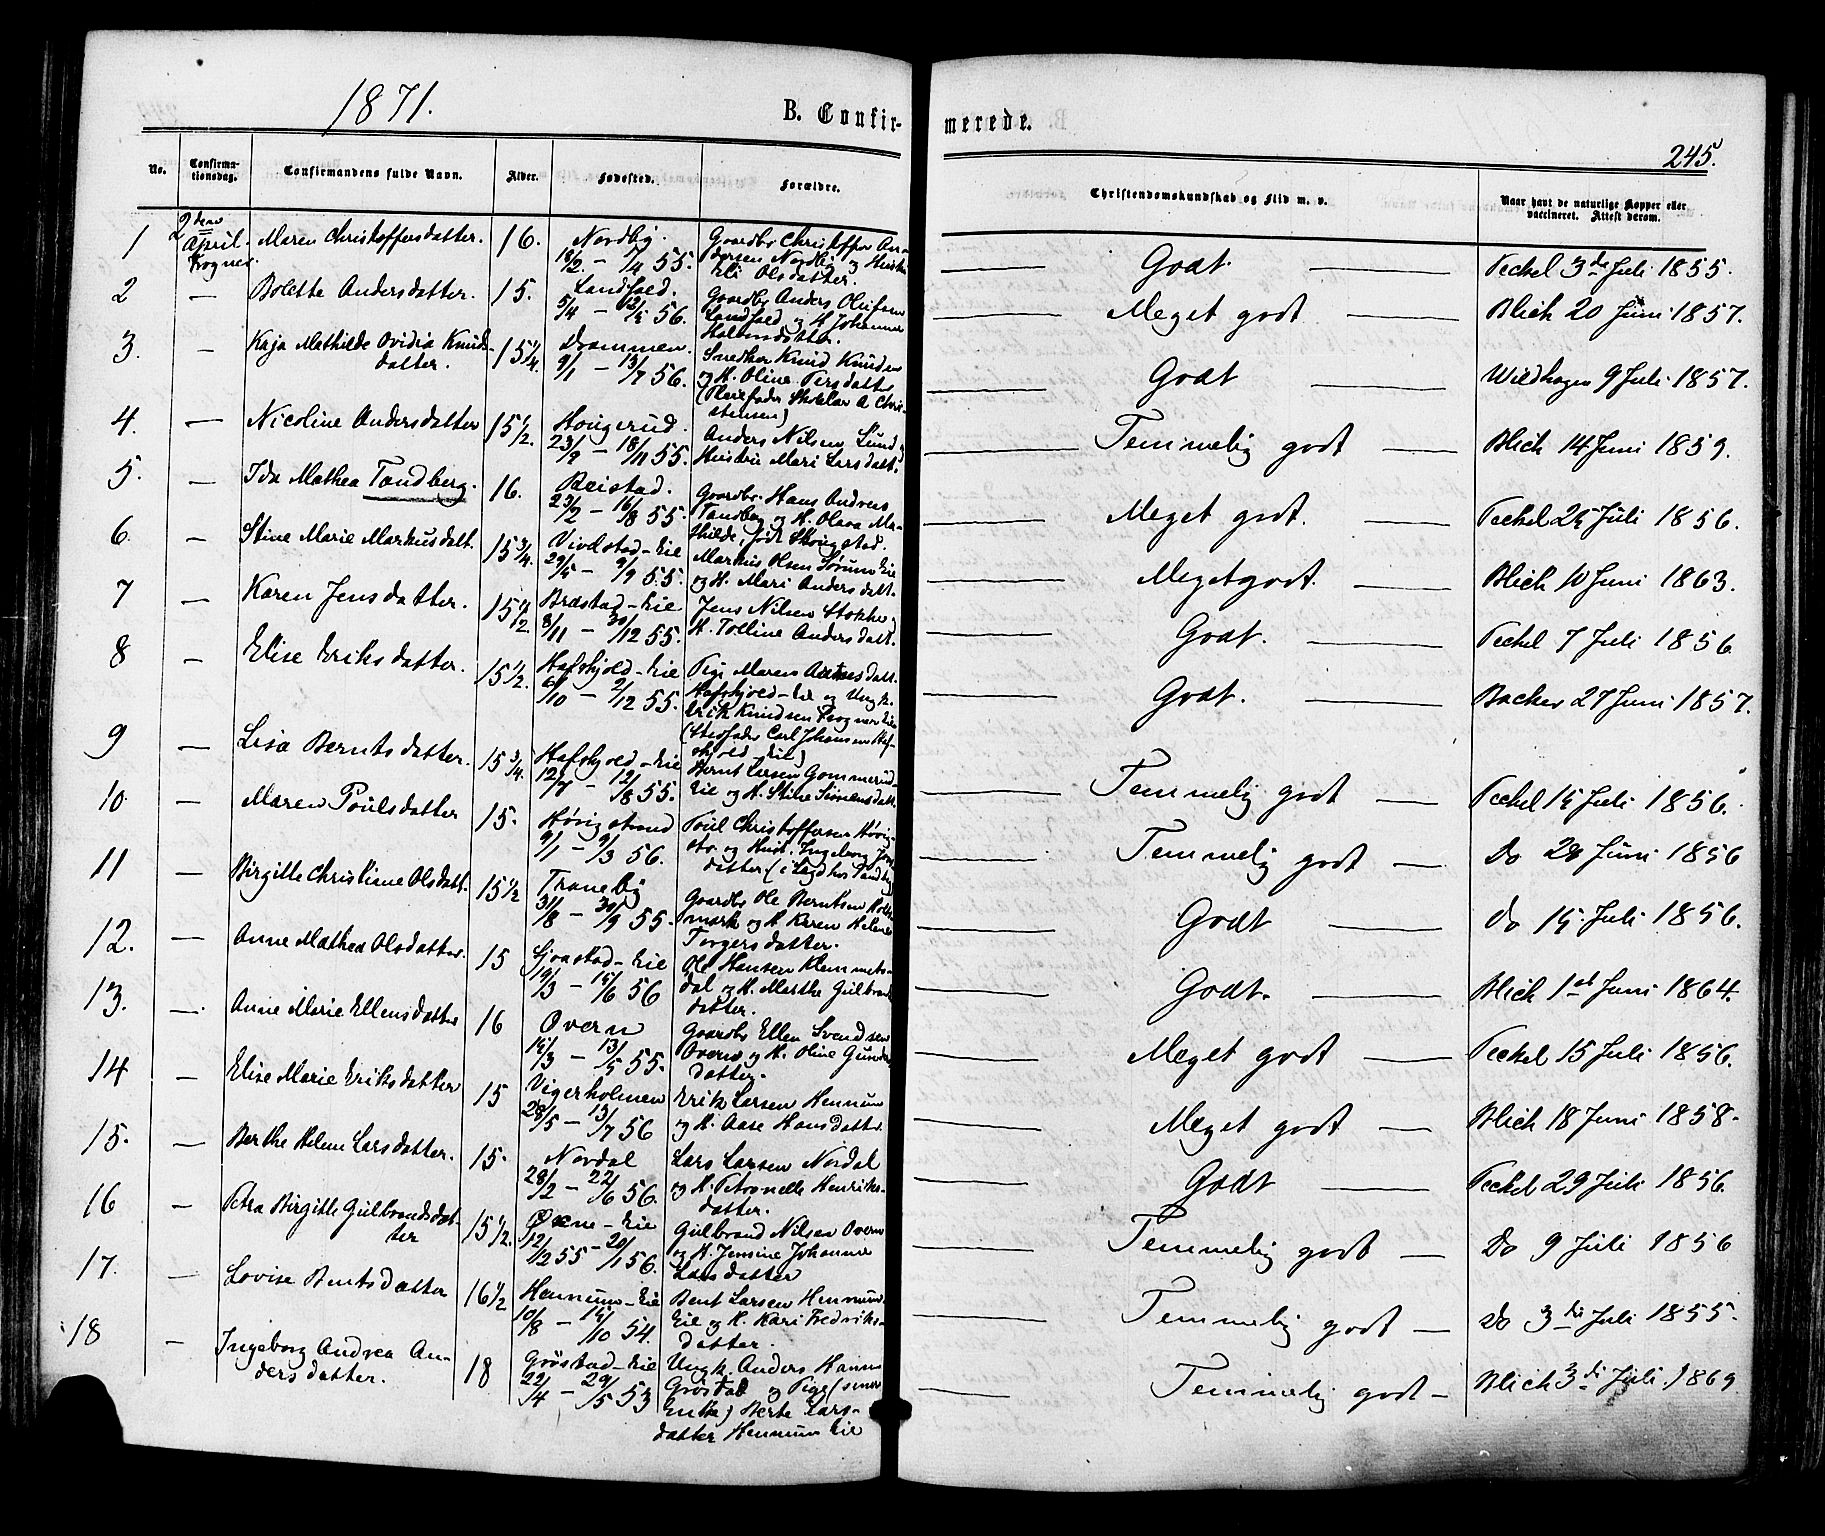 1871.
B. Confir-
merede.
245.
No.
Confirma-
tionsdag.
Confirmandens fulde Navn.
Alder.
Fødested.
Forældre.
Christendomskundskab og Flid m. v.
Naar havt de naturlige Kopper eller
vaccineret. Attest derom.
1 2den April Maren Christoffersdatter. 16. Nordby.
18/2 - 55.
Gaardbr Christoffer An-
dersen Nordby og Hustru
Eli Olsdatter.
Godt. Teckel 3de Juli 1855.
2 — Bolette Andersdatter. 15. Landfald.
5/4 - 56.
Gaardbr Anders Olufsen
Landfald og H Johanne
Meget godt Blich 20 Juni 1857.
3. — Kaja Mathilde Ovidia Knuds-
datter. 15 1/4. Drammen.
9/1 - 13/7 56.
Snedker Knud Knudsen
og H. Oline Persdatter
(Pleiefader Skolelær A Chri-
stensen)
Godt Wildhagen 9 Juli 1857.
4. — Nicoline Andersdatter 15 1/2. Hougerud.
23/9 - 18/11 55.
Anders Nilsen Lund
Hustru Mari Larsdatt.
Temmelig godt Blich 14 Juni 1859.
5. — Ida Mathea Tandberg. 16. Beistad.
23/2 - 16/8 55.
Gaardbr. Hans Andreas
Tandberg og H. Olava Ma-
thilde, født
Meget godt. Teckel 25 Juli 1856.
6. — Stine Marie Markusdatt. 15 3/4. Vivelstad-Eie
29/5 - 9/9 55.
Markus Olsen Sørum Eie
og H. Mari Andersdatt.
Meget godt. Blich 10 Juni 1863.
7 — Karen Jensdatter. 15 1/2. Bræstad-Eie
8/11 - 30/12 55.
Jens Nilsen Stokke
H. Tolline Andersdatt.
Godt. Teckel 7 Juli 1856.
8 — Elise Eriksdatter. 15 1/2. Hafskjold-Eie
6/10 - 2/12 55.
Pige Maren
Hafskjold-Eie og Ungk.
Erik Knudsen Frogner Eie
(Stedfader Carl Johansen Haf-
skjold Eie)
Godt. Backer 27 Juni 1857.
9 — Lisa Berntsdatter. 15 3/4. Hafskjold-Eie
12/7 - 12/8 55.
Bernt Larsen Gommerud-
Eie og H. Stine Simensdatt.
Temmelig godt Teckel 15 Juli 1856.
10. — Maren Poulsdatter 15. Høvigstrand
9/1 - 9/3 56.
Poul Christoffersen Høvig-
str. og Hust. Ingeborg
datter
Temmelig godt Do 28 Juni 1856
11 — Birgitte Christiane Olsdatt. 15 1/2 Traneby
31/8 - 30/9 55.
Gaardbr Ole Berntsen
mark og H Karen Helene
Torgersdatter.
Godt Do 15 Juli 1856.
12. — Anne Mathea Olsdatter. 15 Gjoastad-Eie
19/3 - 15/6 56
Ole Hansen Klemmets-
dal og H. Marthe Gulbrands
datter.
Godt. Blich 1st Juni 1864.
13. — Anne Marie Ellensdatter 16 Overn
15/3 - 13/5 55.
Gaardbr Ellen Svendsen
Overn og H. Oline
datter.
Meget godt Teckel 15 Juli 1856.
14 — Elise Marie Eriksdatter 15 Vigerholmen
28/5 - 13/7 56
Erik Larsen Hennum
og H. Aase Hansdatter.
Meget godt Blich 18 Juni 1858.
15. — Berthe Helene Larsdatter. 15. Nordal
28/2 - 22/6 56.
Lars Larsen Nordal
og H. Petronelle Henriks-
datter.
Godt Teckel 29 Juli 1856.
16 — Petra Birgitte Gulbrandsdat-
ter 15 1/2. Øxne-Eie
12/12 55 - 20/1 56.
Gulbrand Nilsen Overn
og H. Jensine Johanne
Larsdatter
Temmelig godt Do 9 Juli 1856
17. — Lovise Bentsdatter 16 1/2 Hennum-Eie
10/8 - 15/10 54.
Bent Larsen Hennum
Eie og H. Kari Fredriks-
datter.
Temmelig godt Do 3die Juli 1855.
18 — Ingeborg Andrea An-
dersdatter. 18 Grøstad-Eie
22/4 - 29/5 53
Ungk. Anders Hansen
Grøsdal og Pige (senere
Enke) Berte Lars-
datter Hennum Eie
Temmelig godt Blich 3di Juli 1869